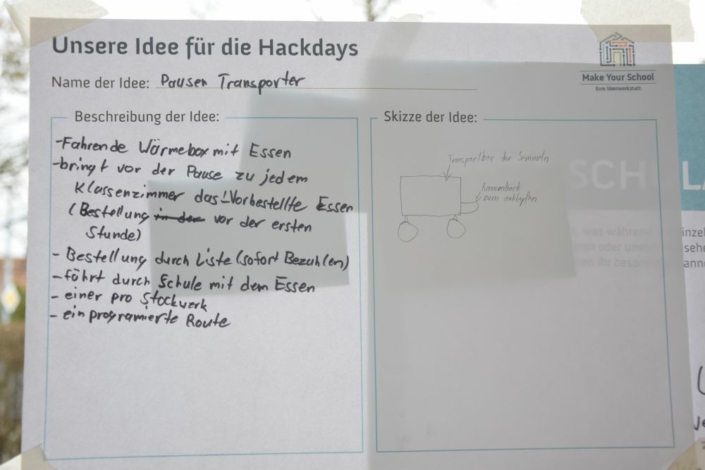 Unsere Idee für die Hackdays
Make Your School
Eure Ideenwerkstatt
Name der Idee: Pausen Transporter
Beschreibung der Idee:
-Fahrende Wärmebox mit Essen
-bringt vor der Pause zu jedem
Klassenzimmer das Vorbestellte Essen
(Bestellung in der vor der ersten
Stunde)
- Bestellung durch Liste (sofort Bezahlen)
- fährt durch Schule mit dem Essen
- einer pro Stockwerk
- ein programierte Route
Skizze der Idee:
Transportbox der
zum
SCH